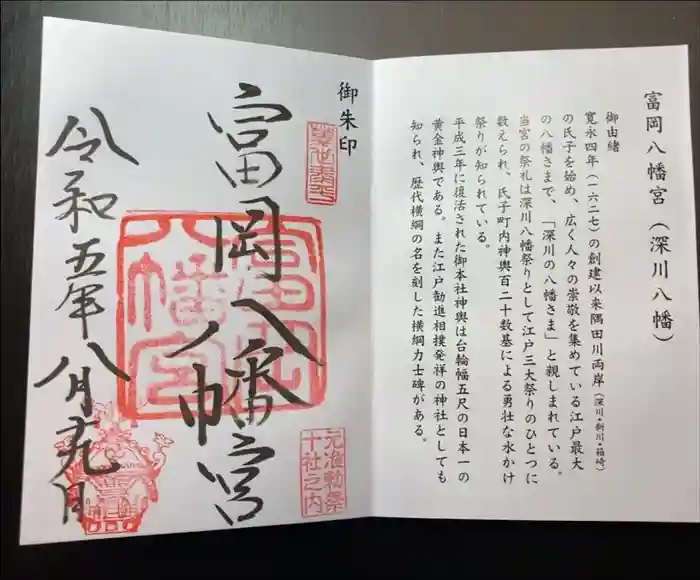 富岡八幡宮(深川八幡)
御由緒
寛永四年(一六二七)の創建以来隅田川両岸(深川・新川・箱崎)
の氏子を始め、広く人々の崇敬を集めている江戸最大
の八幡さまで、「深川の八幡さま」と親しまれている。
当宮の祭礼は深川八幡祭りとして江戸三大祭りのひとつに
数えられ、氏子町内神輿百二十数基による勇壮な水かけ
祭りが知られている。
平成三年に復活された御本社神輿は台輪幅五尺の日本一の
黄金神輿である。また江戸勧進相撲発祥の神社としても
知られ、歴代横綱の名を刻した横綱力士碑がある。
御朱印
元准勅祭
十社之内
富岡八幡宮
富岡
八幡宮
令和五年八月十九日